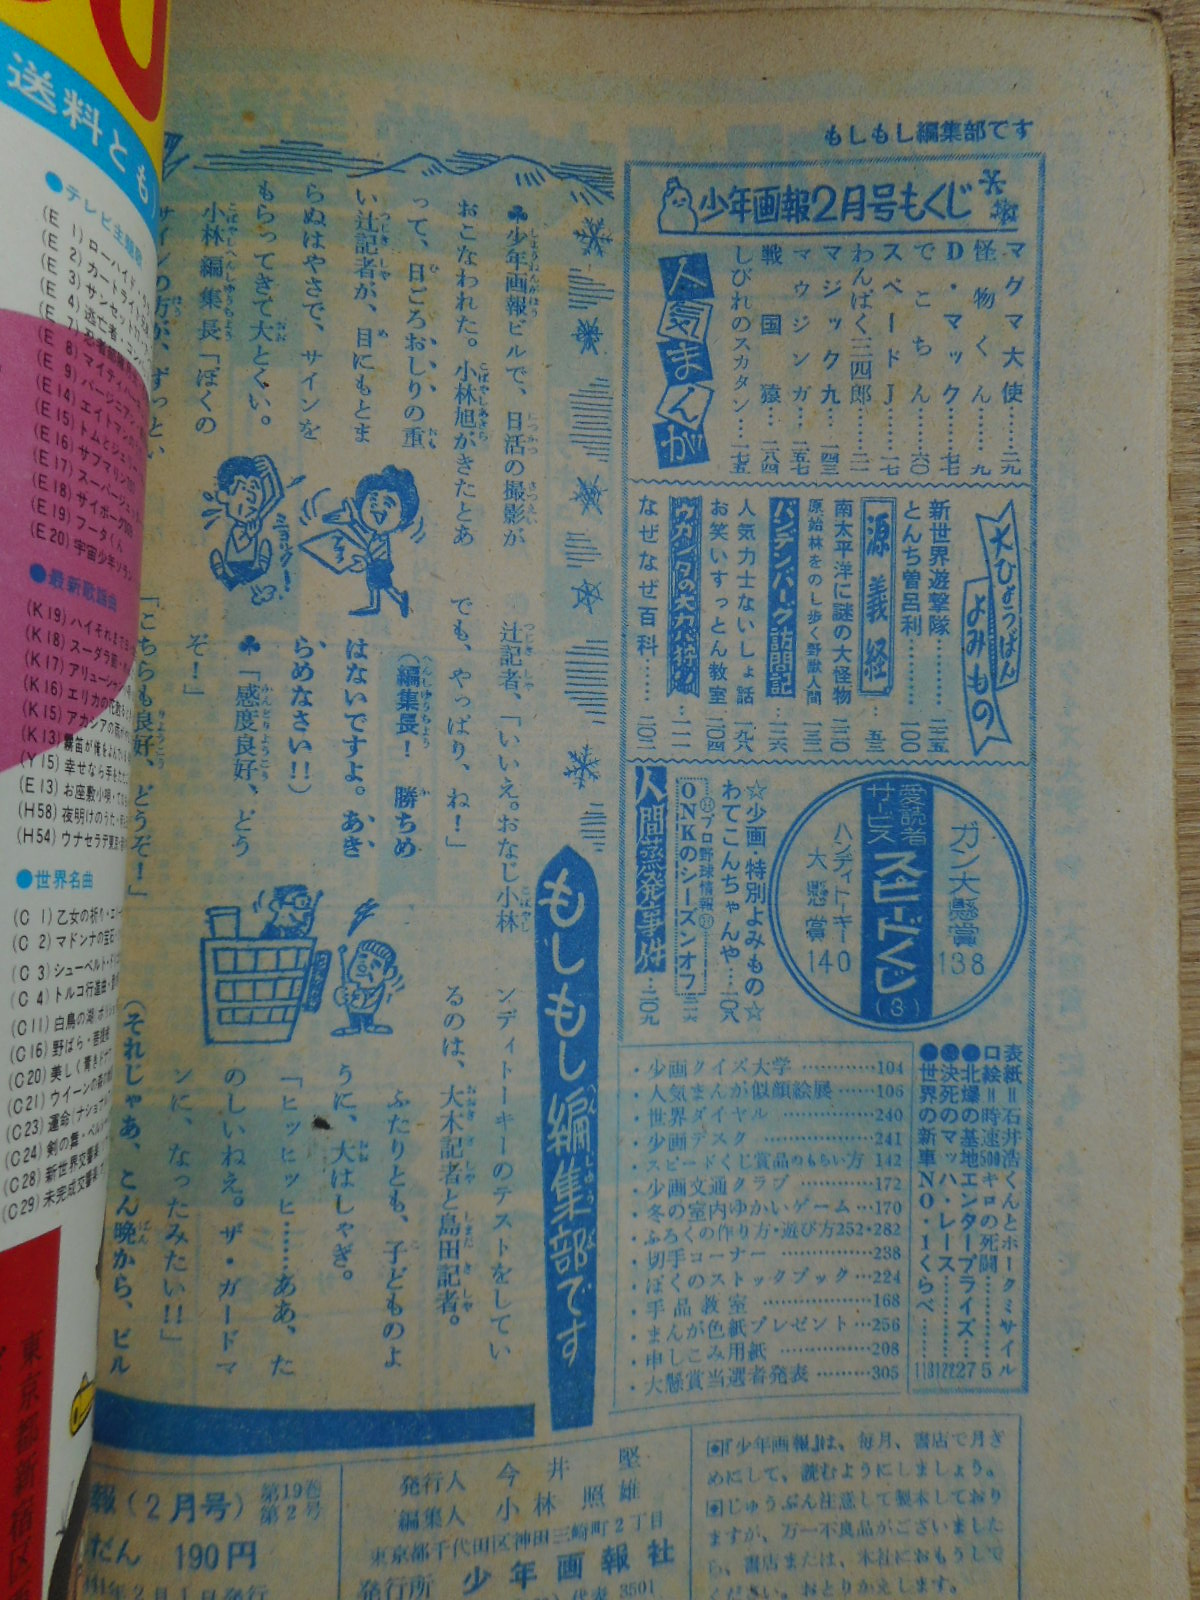 もしもし編集部です
少年画報2月号もくじ
人気まんが
マグマ大使……二九
怪物くん………九
D・マック………七七
でこちん……六〇
スペードJ……一七
わんぱく三四郎…二一
マジック九…一四三
マウジンガ…一五七
戦国猿…一八四
しびれのスカタン…一七五
大ひょうばんよみもの
新世界遊撃隊…………二三五
とんち曽呂利…………一〇〇
源義経…五三
南太平洋に謎の大怪物 二二〇
原始林をのし歩く野獣人間
パンデンバーグ訪問記…
人気力士ないしょ話 一九八
お笑いすっとん教室 二〇四
なぜなぜ百科……二〇二
ガン大懸賞 138
愛読者サービス スピードくじ(3)
ハンディトーキー大懸賞 140
☆少画・特別よみもの☆
わてこんちゃんや…一〇八
プロ野球情報
ONKのシーズンオフ
人間蒸発事件 二〇九
表紙=石井浩くんとホークミサイル
口絵=時速500キロの死闘…………5
●北爆の基地エンタープライズ…27
●決死のマッハ・レース…………
●世界の新車NO・1くらべ……
・少画クイズ大学…………104
・人気まんが似顔絵展……106
・世界ダイヤル……………240
・少画デスク………………241
・スピードくじ賞品のもらい方 142
・少画文通クラブ…………172
・冬の室内ゆかいゲーム…170
・ふろくの作り方・遊び方252・282
・切手コーナー……………238
・ぼくのストックブック…224
・手品教室…………………168
・まんが色紙プレゼント…256
・申しこみ用紙……………208
・大懸賞当選者発表………305
もしもし編集部です
♣少年画報ビルで、日活の撮影が
おこなわれた。小林旭がきたとあ
って、日ごろおしりの重
い辻記者が、目にもとま
らぬはやさで、サインを
もらってきて大とくい。
小林編集長「ぼくの
サインの方が、ずっとい
ニヨッ!
辻記者「いいえ。おなじ小林
でも、やっぱり、ね!」
(編集長! 勝ちめ
はないですよ。あき
らめなさい!!)
♣「感度良好、どう
ぞ!」
「こちらも良好、どうぞ!」
ンディトーキーのテストをしてい
るのは、大木記者と島田記者。
ふたりとも、子どものよ
うに、大はしゃぎ。
「ヒッヒッヒ……ああ、た
のしいねえ。ザ・ガードマ
ンに、なったみたい!!」
(それじゃあ、こん晩から、ビル
◉『少年画報』は、毎月、書店で月ぎ
めにして、読むようにしましょう。
◉じゅうぶん注意して製本しており
ますが、万一不良品がございました
ら、書店または、本社におもうしで
ください。おとりかえします。
発行人 今井堅
編集人 小林照雄
東京都千代田区神田三崎町2丁目
発行所 少年画報社
代表 3501
報(2月号) 第19巻第2号
だん 190円
年2月1日発行
送料とも
●テレビ主題歌
(E 1)ローハイド・
(E 2)カートライト
(E 3)サンセット
(E 4)逃亡者・
(E 7)忍者部隊
(E 8)マイティ
(E 9)バージニア
(E14)エイトマン
(E15)トムとジェリー
(E16)サブマリン
(E17)スーパージェッ
(E18)サイボーグ
(E19)フータくん
(E20)宇宙少年ソラン
●最新歌謡曲
(K19)ハイそれまでヨ
(K18)スーダラ節・
(K17)アリューシャン
(K16)エリカの花
(K15)アカシアの雨が
(K13)霧笛が俺をよんで
(Y15)幸せなら手をたた
(E13)お座敷小唄・
(H58)夜明けのうた・
(H54)ウナセラデ東京
●世界名曲
(C 1)乙女の祈り・エ
(C 2)マドンナの宝石
(C 3)シューベルト・
(C 4)トルコ行進曲・
(C11)白鳥の湖
(C16)野ばら・菩提樹
(C20)美しく青き
(C21)ウイーンの森の
(C23)運命(ナショナル
(C24)剣の舞・ペル
(C28)新世界交響楽
(C29)未完成交響楽
東京都新宿区